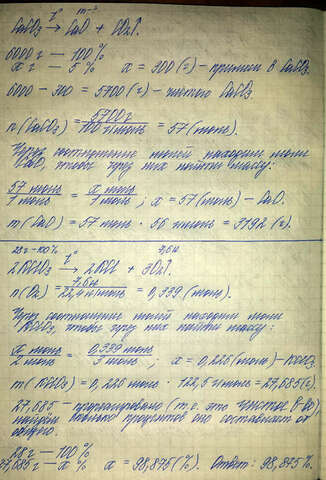 CaCO₃ →t° CaO + CO₂↑.
6000 г — 100 %
x г — 5 % x = 300 (г) - примеси в CaCO₃.
6000 - 300 = 5700 (г) - чистого CaCO₃
n(CaCO₃) = 5700 г / 100 г/моль = 57 (моль).
Через соотношение молей находим моли
CaO, чтобы через них найти массу:
57 моль / 1 моль = x моль / 1 моль ; x = 57 (моль) - CaO.
m(CaO) = 57 моль · 56 г/моль = 3192 (г).
28 г - 100 % 7,6 л
2KClO₃ →t° 2KCl + 3O₂↑.
n(O₂) = 7,6 л / 22,4 л/моль = 0,339 (моль).
Через соотношение молей находим моли
KClO₃, чтобы через них найти массу:
x моль / 2 моль = 0,339 моль / 3 моль ; x = 0,226 (моль) - KClO₃.
m(KClO₃) = 0,226 моль · 122,5 г/моль = 27,685 (г).
27,685 - прореагировало (т.е. это чистое в-во),
найдём сколько процентов оно составляет от
общего:
28 г — 100 %
27,685 г — x % x = 98,875 (%). Ответ: 98,875 %.